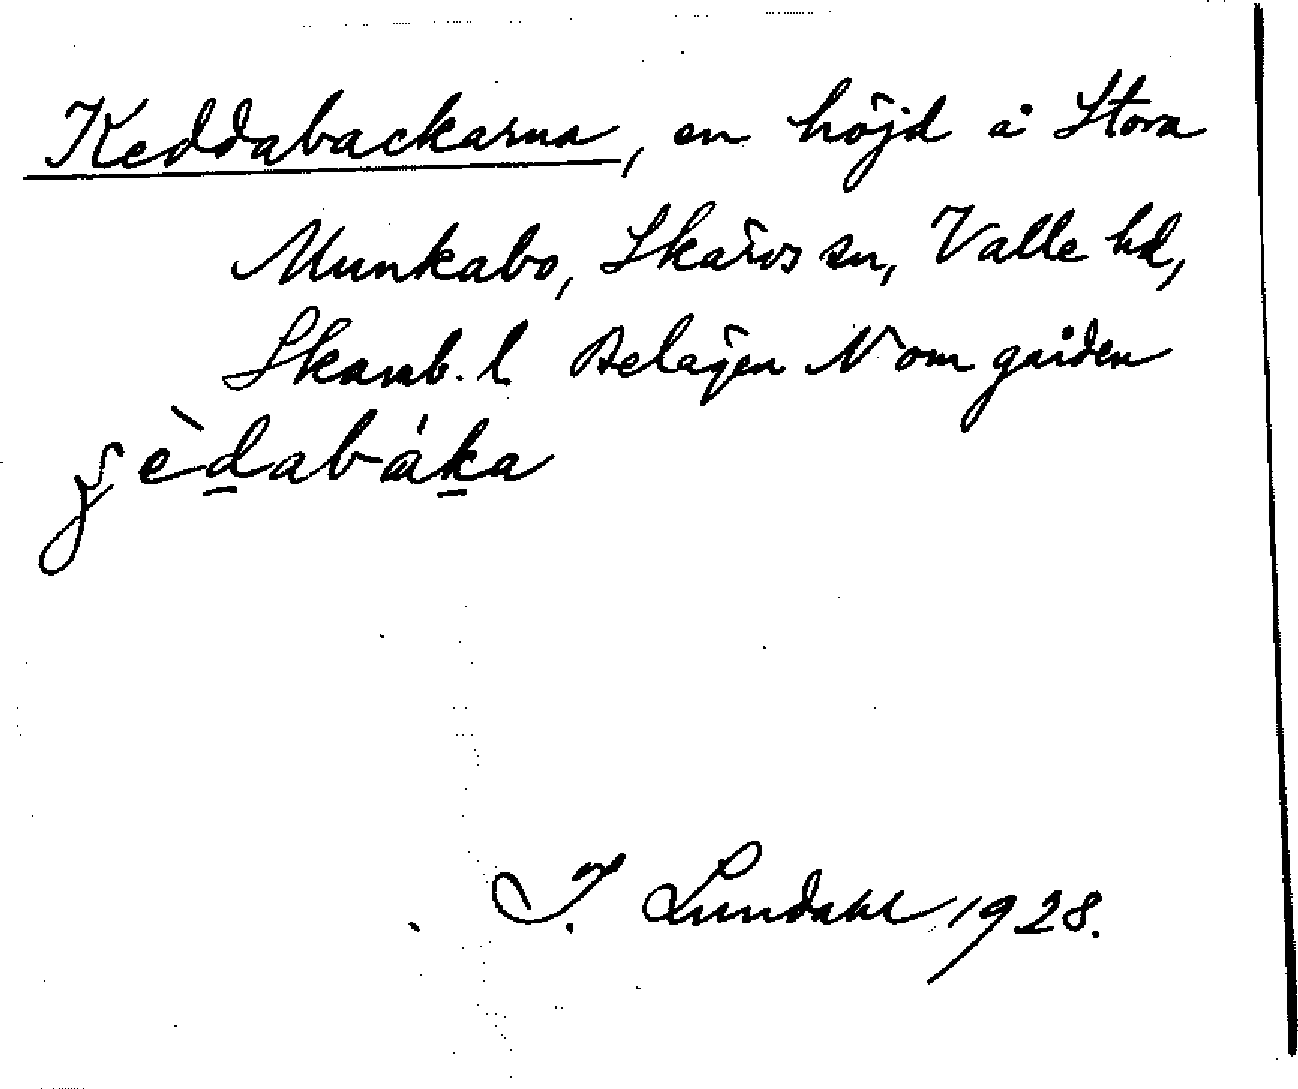 Keddabackarna, en höjd å Stora
Munkabo, Skärvs sn, Valle hd,
Skarab. l Belägen N om gården
èdabáka
I. Lundahl 1928.